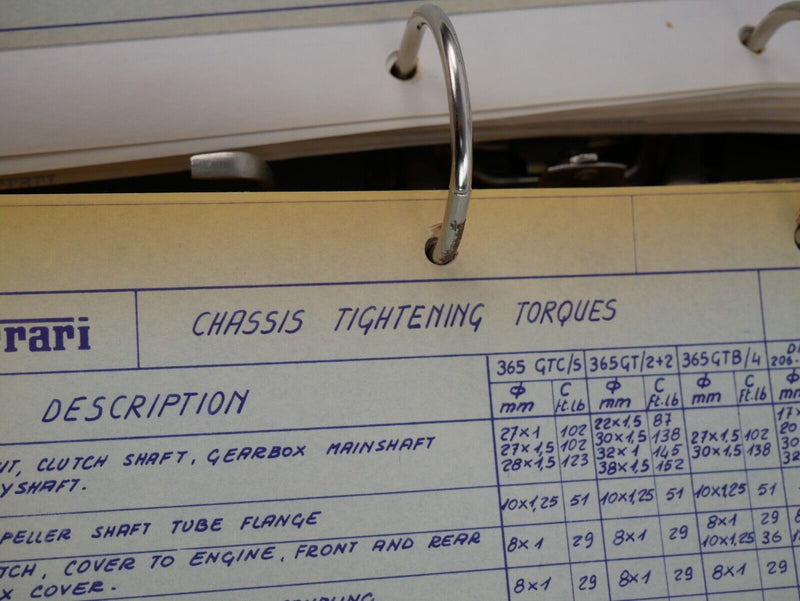 rrari CHASSIS TIGHTENING TORQUES
365 GTC/S 365GT/2+2 365GTB/4 206
DESCRIPTION Φ mm C Ft.lb Φ mm C Ft.lb Φ mm C Ft.lb Φ mm
UT, CLUTCH SHAFT, GEARBOX MAINSHAFT
YSHAFT.
27×1 102 22×1,5 87
27×1,5 102 30×1,5 138 27×1,5 102
28×1,5 123 32×1 145 30×1,5 138
38×1,5 152
PELLER SHAFT TUBE FLANGE 10×1,25 51 10×1,25 51 10×1,25 51
TCH, COVER TO ENGINE, FRONT AND REAR
X COVER.
8×1 29 8×1 29 8×1 29
10×1,25 36
8×1 29 8×1 29 8×1 29